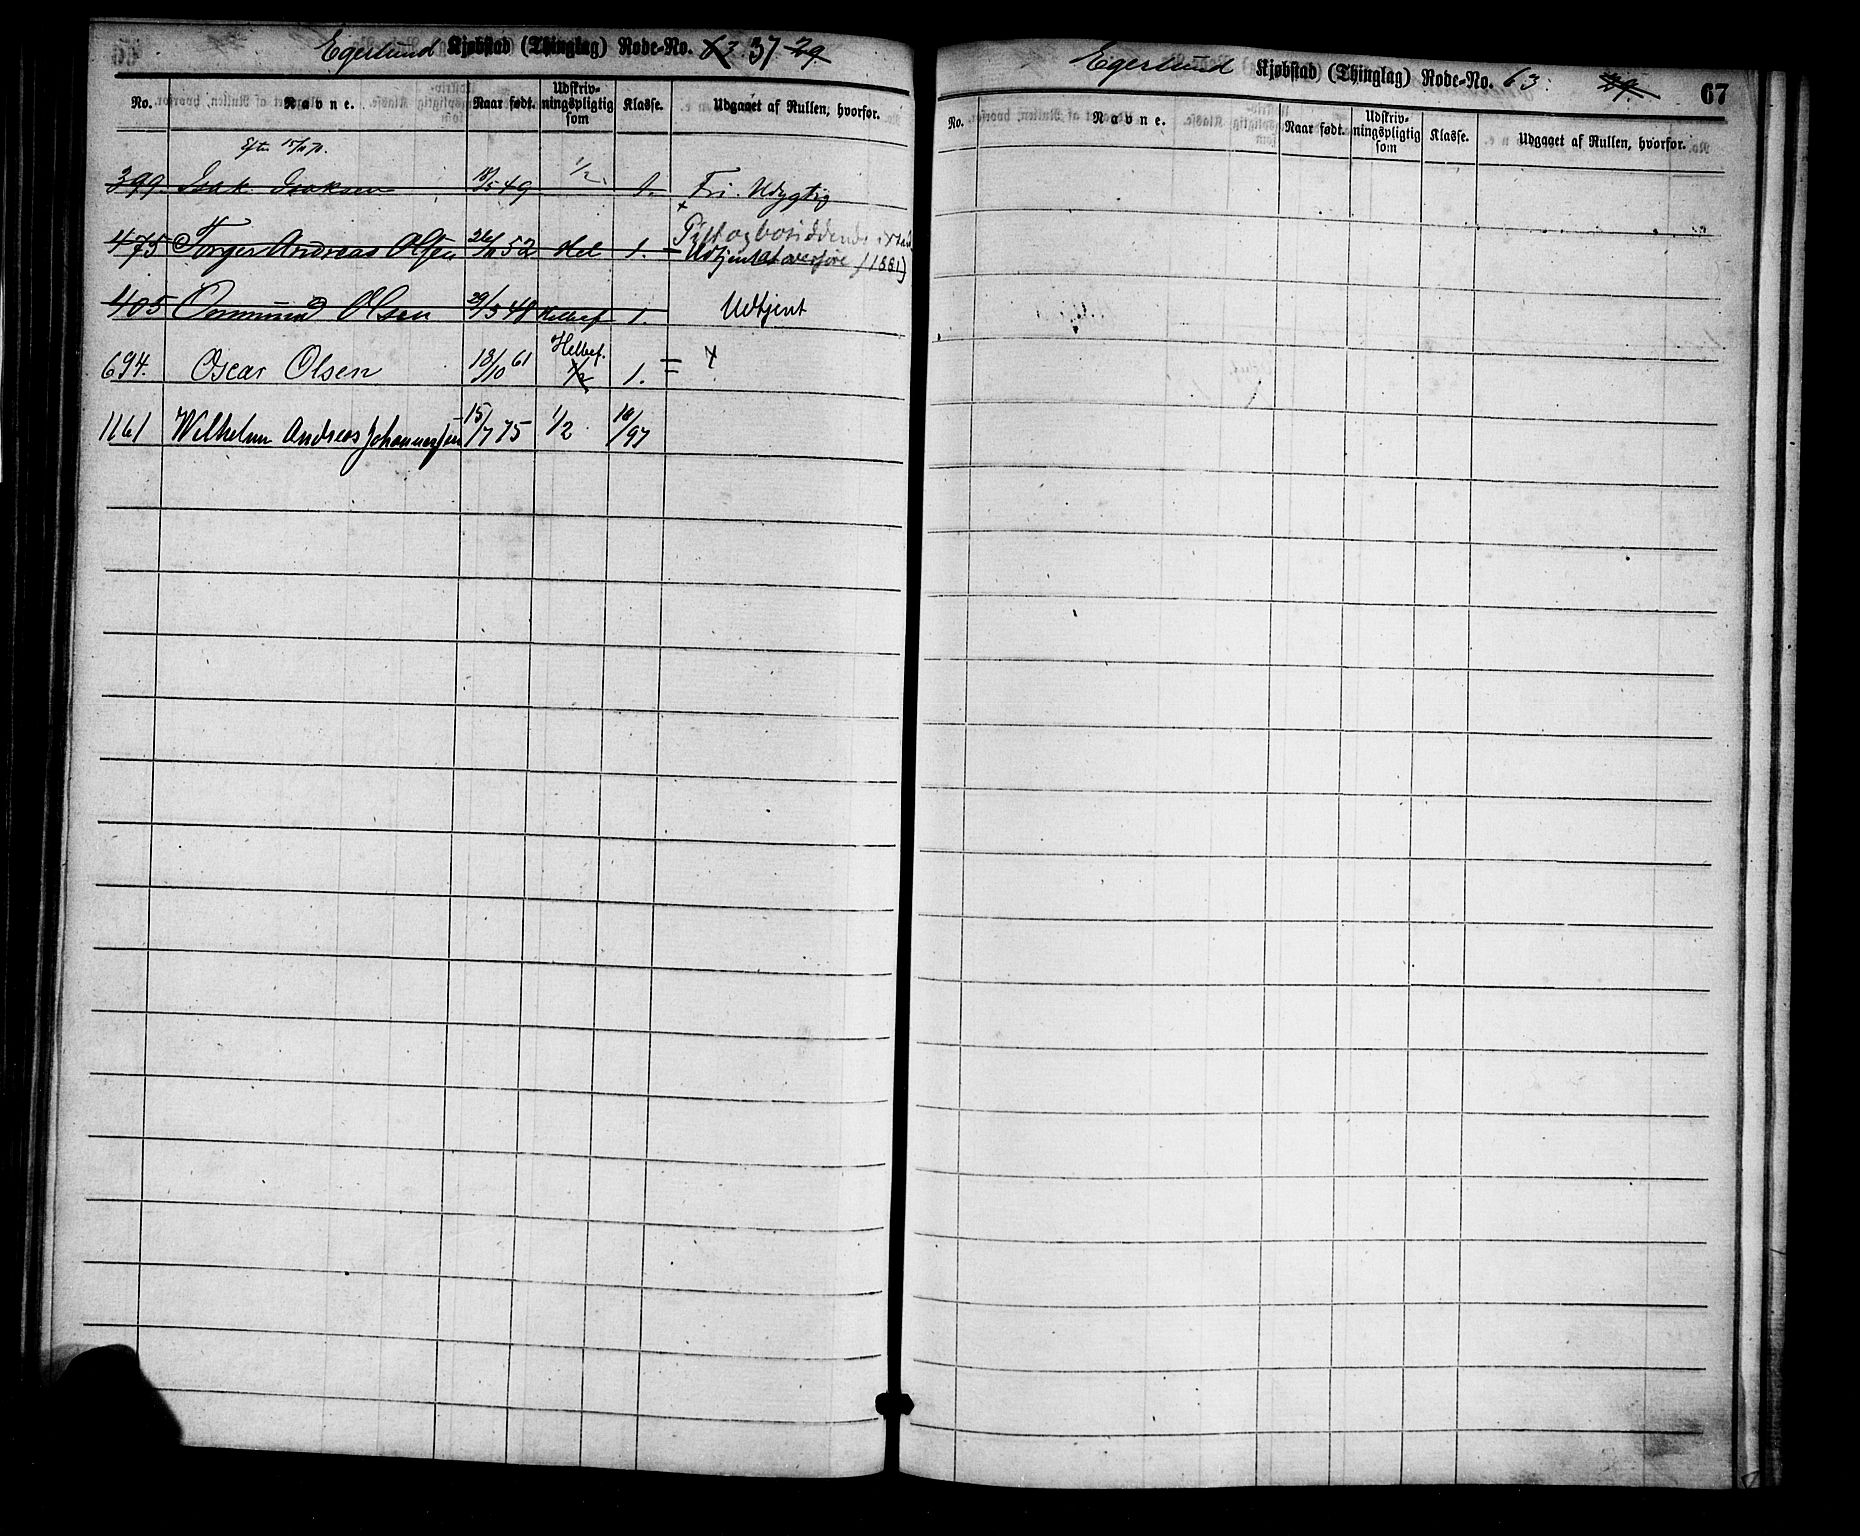 Egersund Kjøbstad (Thinglag) Rode-No. 63 37 29
No. Navne. Naar født. Udskriv-ningspligtig som Klasse. Udgaaet af Rullen, hvorfor.
399. Isak Isaksen 18/5 49 1/2 1. Fri. Udygtig
475 Torger Andreas Olsen 26/11 52 Hel 1. Gift og bosiddende
Udtjent overføre (1881)
405 Osmund Olsen 29/3 48 Helbef 1. Udtjent
694. Oscar Olsen 13/10 61 Helbef. 1/2 1.
1161 Wilhelm Andreas Johannessen 15/7 75 1/2 10/97
Egersund Kjøbstad (Thinglag) Rode-No. 63. 29. 67
No. Navne. Naar født. Udskriv-ningspligtig som Klasse. Udgaaet af Rullen, hvorfor.